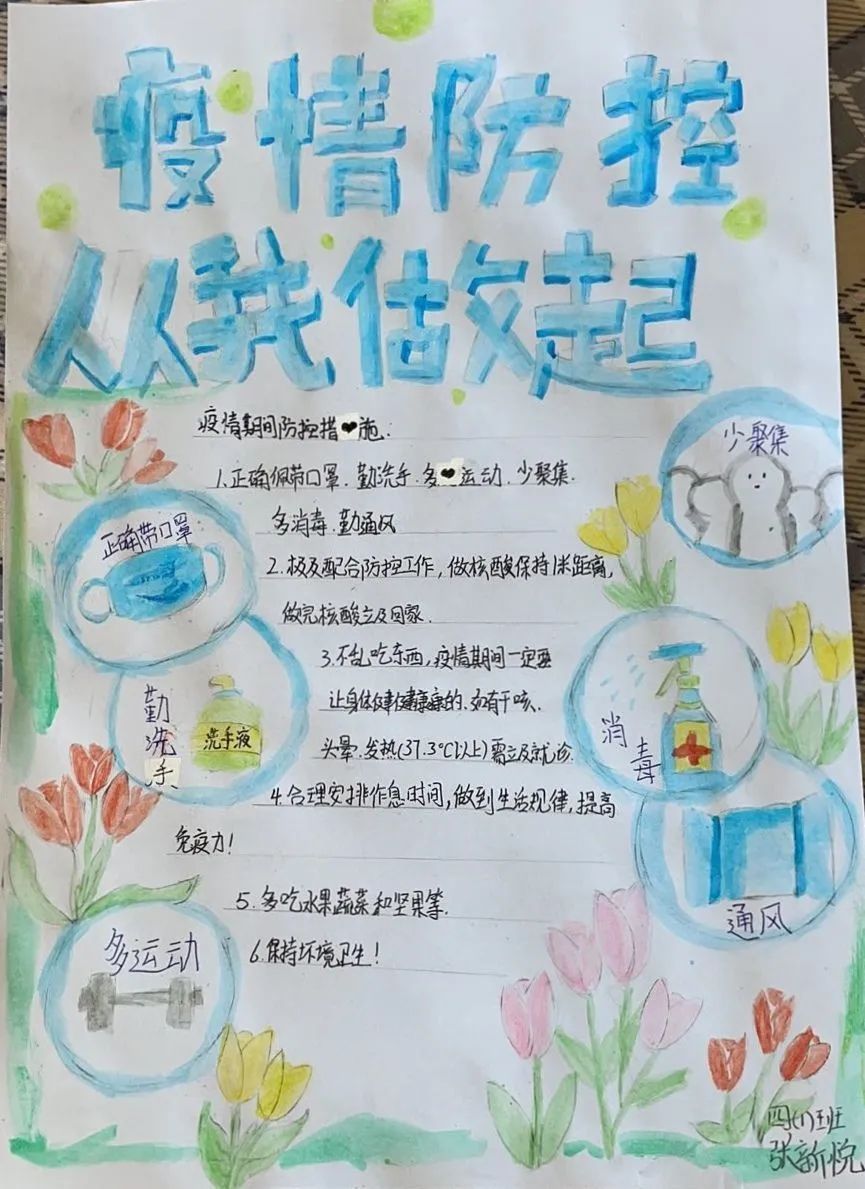 疫情防控
从我做起
疫情期间防控措❤施.
1.正确佩带口罩.勤洗手.多❤运动.少聚集.
多消毒.勤通风
2.极及配合防控工作,做核酸保持1米距离,
做完核酸立及回家.
3.不乱吃东西,疫情期间一定要
让身体健健康康的.如有干咳.
头晕.发热(37.3℃以上)需立及就诊.
4.合理安排作息时间,做到生活规律,提高
免疫力!
5.多吃水果蔬菜和坚果等.
6.保持环境卫生!
少聚集
正确带口罩
勤洗手
洗手液
消毒
通风
多运动
四(1)班
张新悦